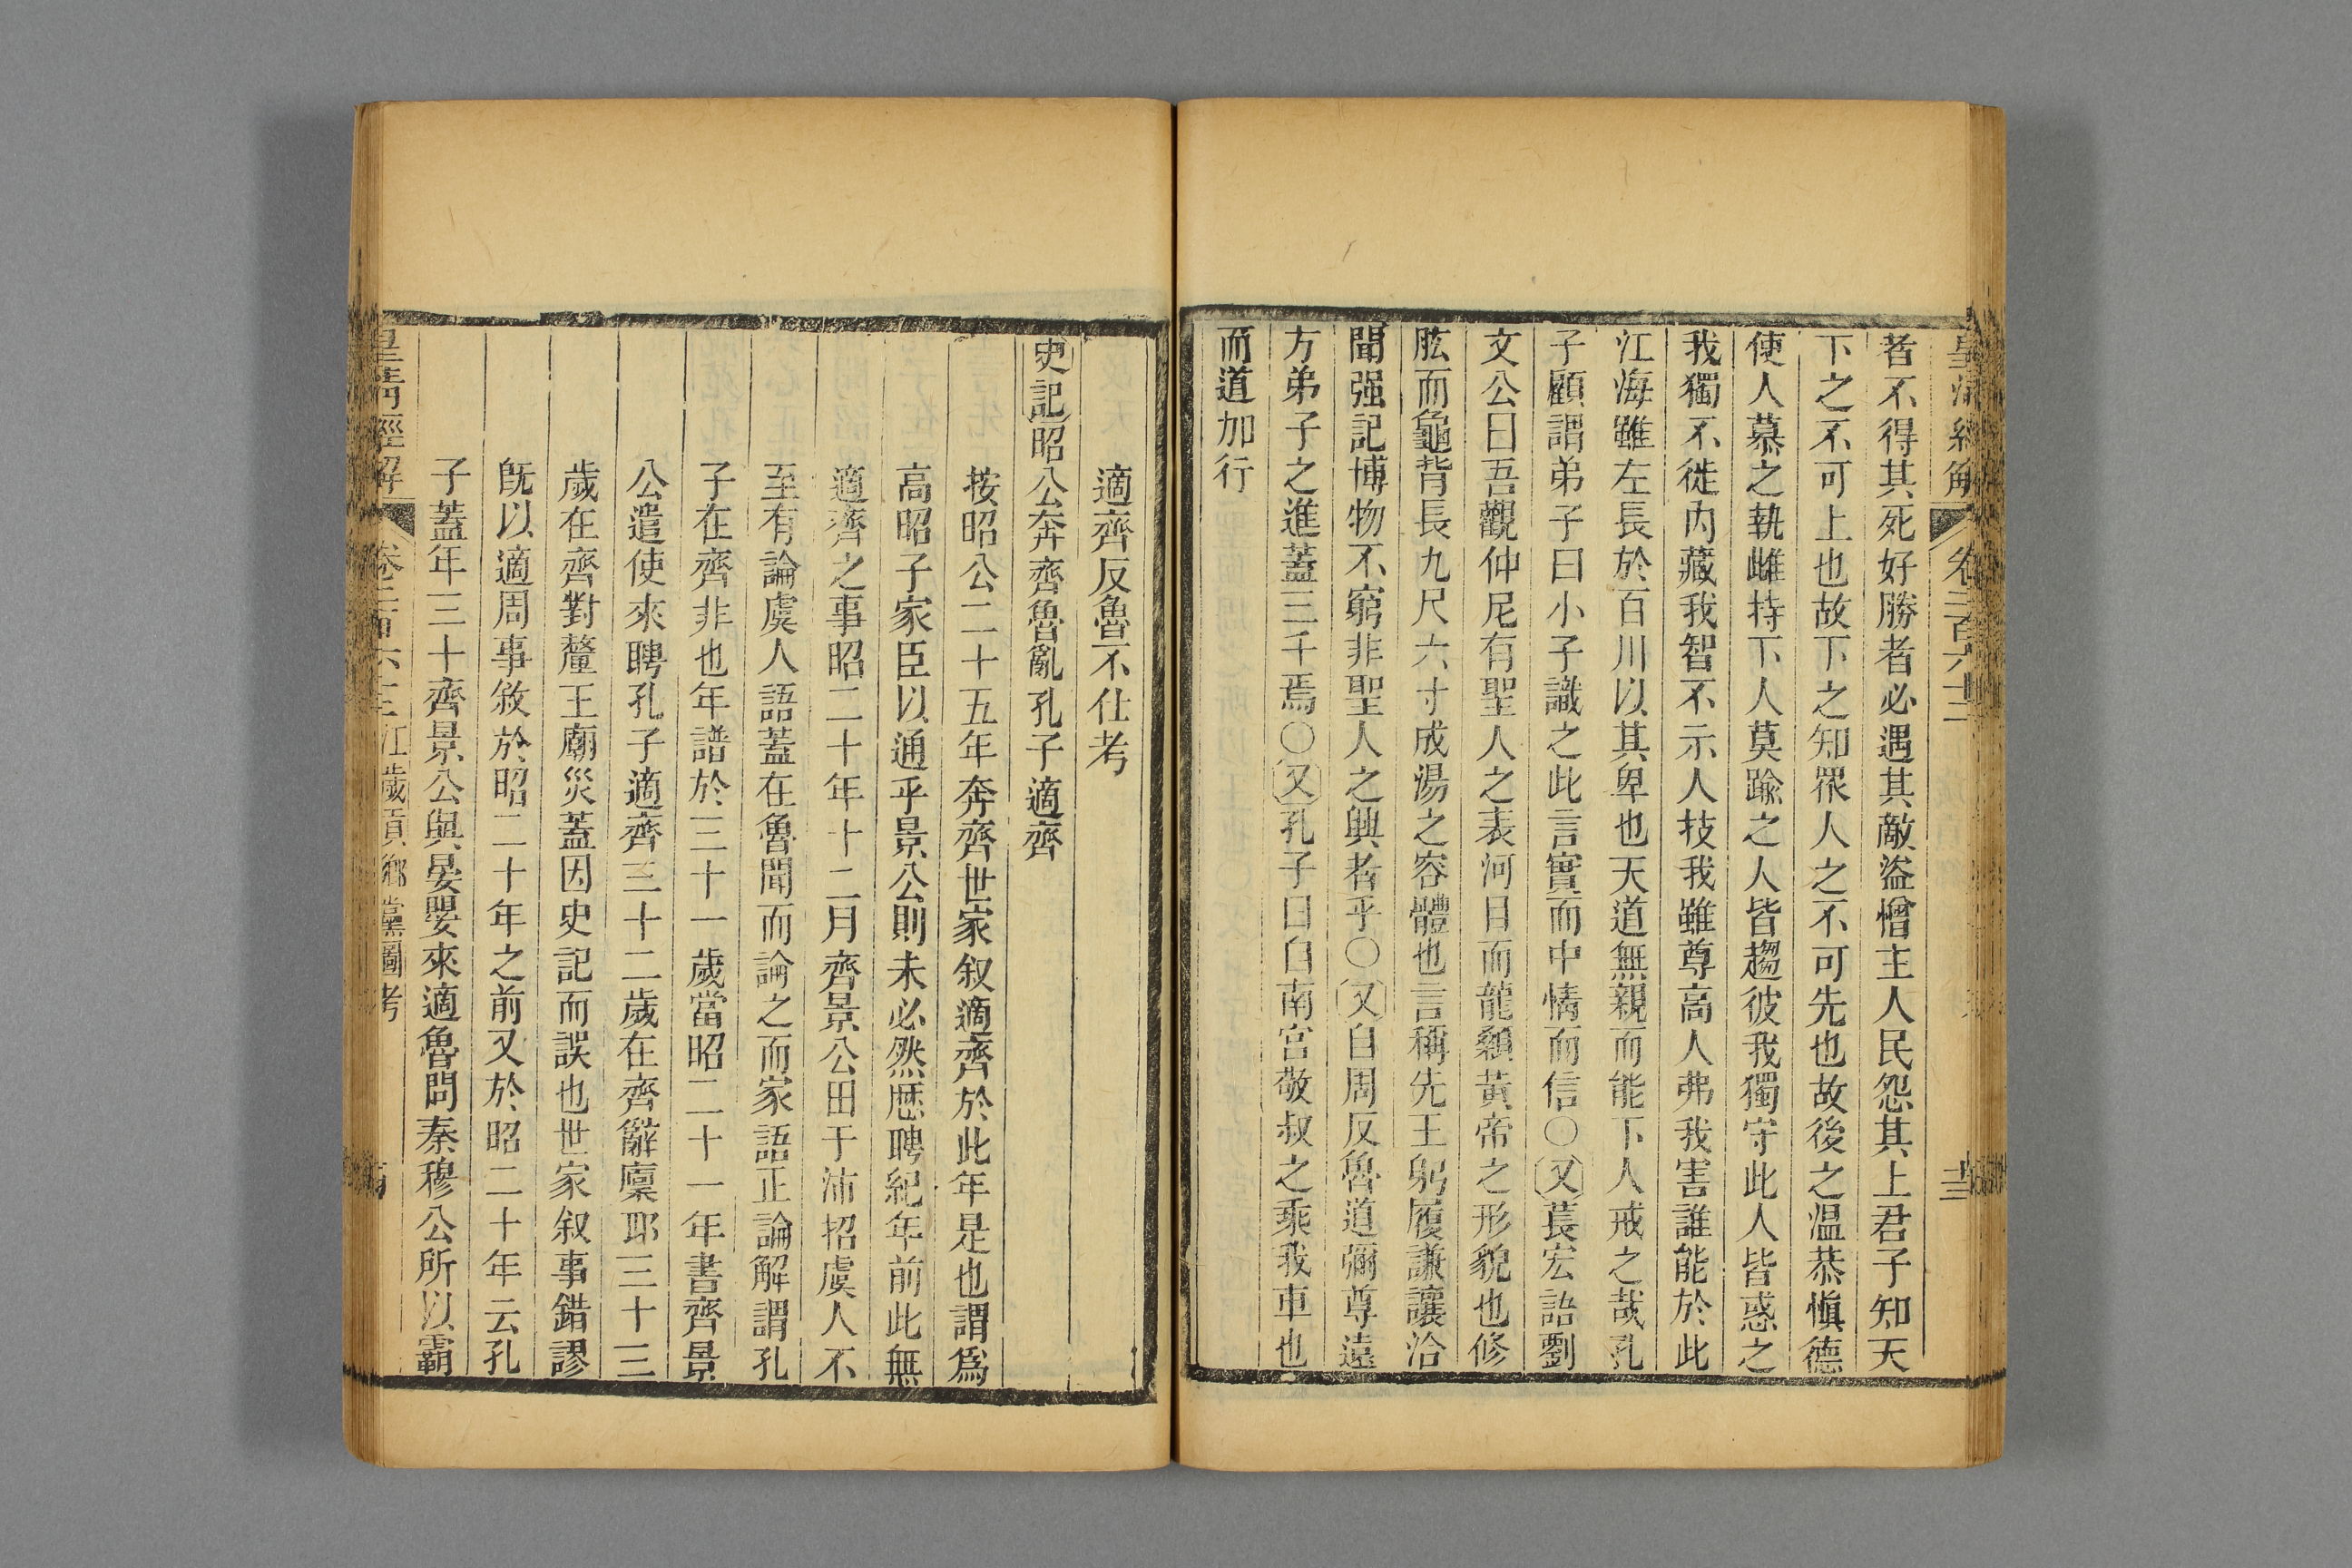 皇清經解 卷二百六十二 十三
者不得其死好勝者必遇其敵盜憎主人民怨其上君子知天
下之不可上也故下之知眾人之不可先也故後之温恭愼德
使人慕之執雌持下人莫踰之人皆趨彼我獨守此人皆惑之
我獨不徙內藏我智不示人技我雖尊高人弗我害誰能於此
江海雖左長於百川以其卑也天道無親而能下人戒之哉孔
子顧謂弟子曰小子識之此言實而中情而信○又萇宏語劉
文公曰吾觀仲尼有聖人之表河目而龍顙黃帝之形貌也修
肱而龜背長九尺六寸成湯之容體也言稱先王躬履謙讓洽
聞强記博物不窮非聖人之興者乎○又自周反魯道彌尊遠
方弟子之進蓋三千焉○又孔子曰自南宮敬叔之乘我車也
而道加行
適齊反魯不仕考
史記昭公奔齊魯亂孔子適齊
按昭公二十五年奔齊世家叙適齊於此年是也謂爲
高昭子家臣以通乎景公則未必然歷聘紀年前此無
適齊之事昭二十年十二月齊景公田于沛招虞人不
至有論虞人語蓋在魯聞而論之而家語正論解謂孔
子在齊非也年譜於三十一歲當昭二十一年書齊景
公遣使來聘孔子適齊三十二歲在齊辭廩邱三十三
歲在齊對釐王廟災蓋因史記而誤也世家叙事錯謬
旣以適周事敘於昭二十年之前又於昭二十年云孔
子蓋年三十齊景公與晏嬰來適魯問秦穆公所以霸
皇清經解 卷二百六十二 江歲貢鄉黨圖考